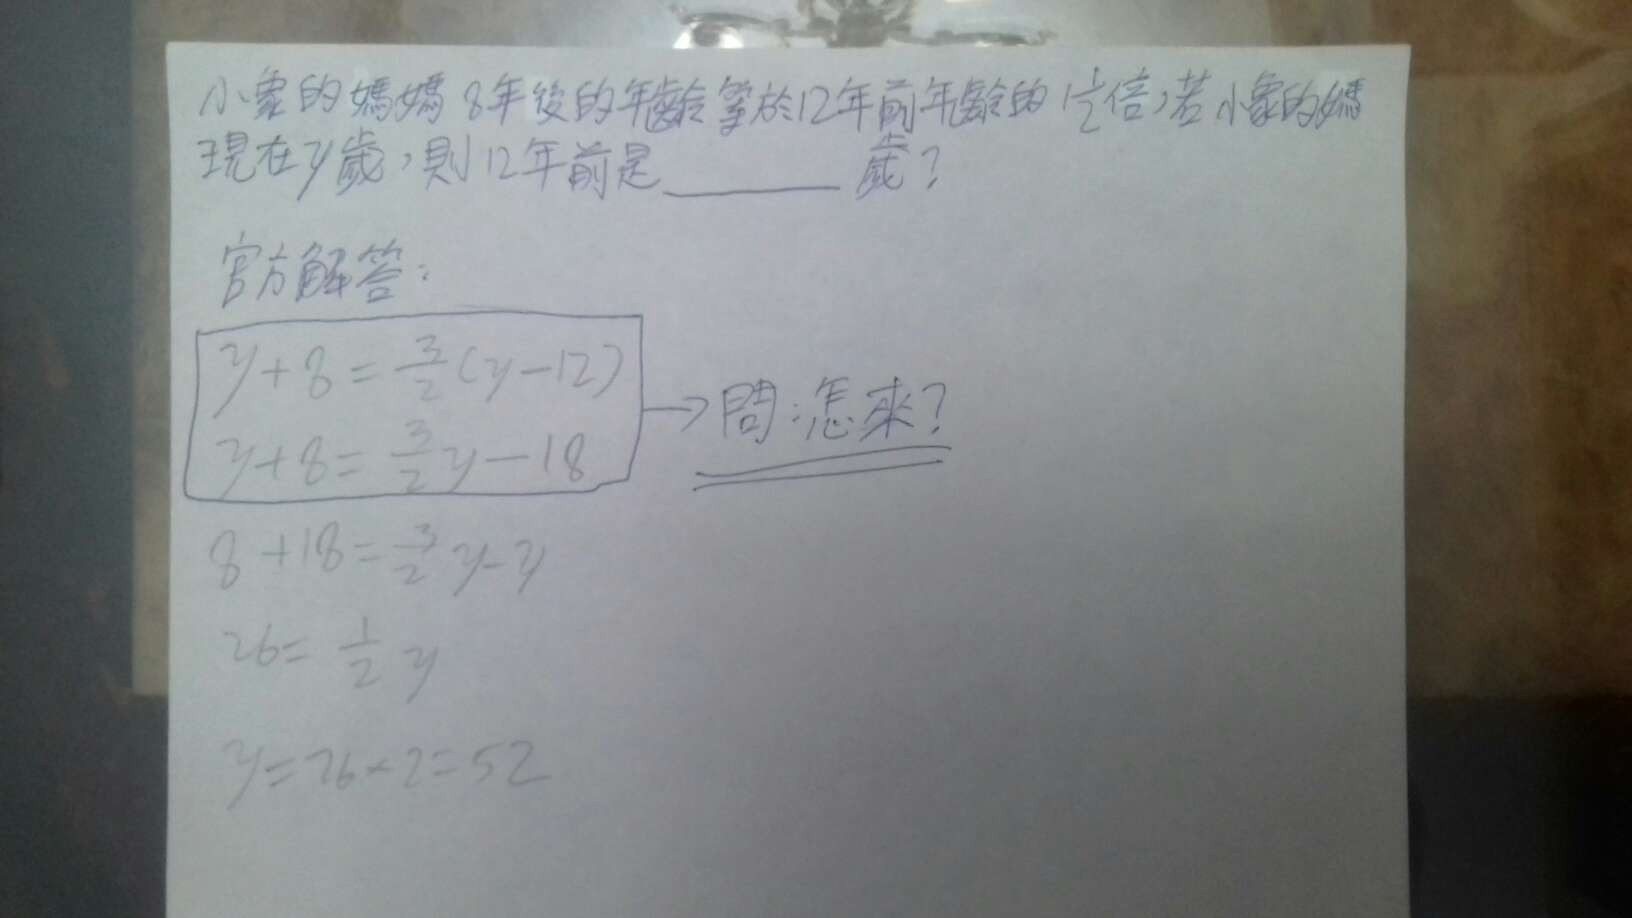 小象的媽媽8年後的年齡等於12年前年齡的1½倍,若小象的媽
現在y歲,則12年前是______歲?
官方解答:
y+8=3/2(y-12)
y+8=3/2y-18
→問:怎來?
8+18=3/2y-y
26=1/2y
y=26×2=52